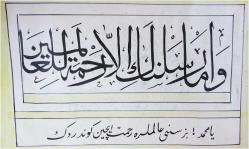 وما ارسلناك الا رحمة للعالمين
يا محمد! بز سنى عالملره رحمت ايچين كوندردك